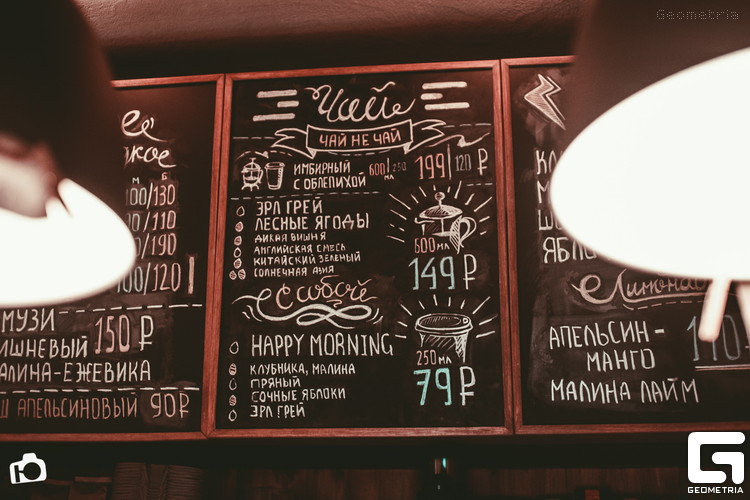 Geometria
100/130
110
190
100/120
МУЗИ
ИШНЕВЫЙ 150 ₽
АЛИНА-ЕЖЕВИКА
Ш АПЕЛЬСИНОВЫЙ 90₽
Чай
ЧАЙ НЕ ЧАЙ
ИМБИРНЫЙ
С ОБЛЕПИХОЙ
600/250
МЛ
199/120 ₽
ЭРЛ ГРЕЙ
ЛЕСНЫЕ ЯГОДЫ
ДИКАЯ ВИШНЯ
АНГЛИЙСКАЯ СМЕСЬ
КИТАЙСКИЙ ЗЕЛЕНЫЙ
СОЛНЕЧНАЯ АЗИЯ
600 МЛ
149 ₽
С собой
HAPPY MORNING
КЛУБНИКА, МАЛИНА
ПРЯНЫЙ
СОЧНЫЕ ЯБЛОКИ
ЭРЛ ГРЕЙ
250 МЛ
79 ₽
ЯБЛО
Лимонад
АПЕЛЬСИН-
МАНГО
МАЛИНА ЛАЙМ
GEOMETRIA